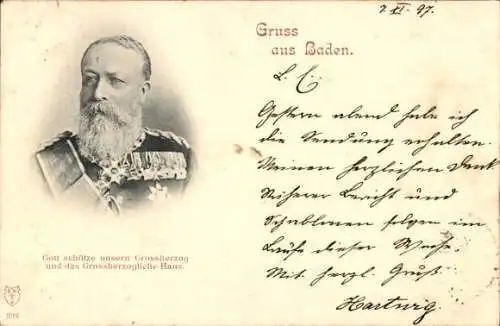 7. XI. 97.
Gruss
aus Baden.
L. E.
Gestern abend habe ich
die Sendung erhalten.
Meinen herzlichen Dank
Näherer Bericht und
Schablonen folgen im
Laufe dieser Woche.
Mit herzl. Gruß
Hartwig.
Gott schütze unsern Grossherzog
und das Grossherzogliche Haus.